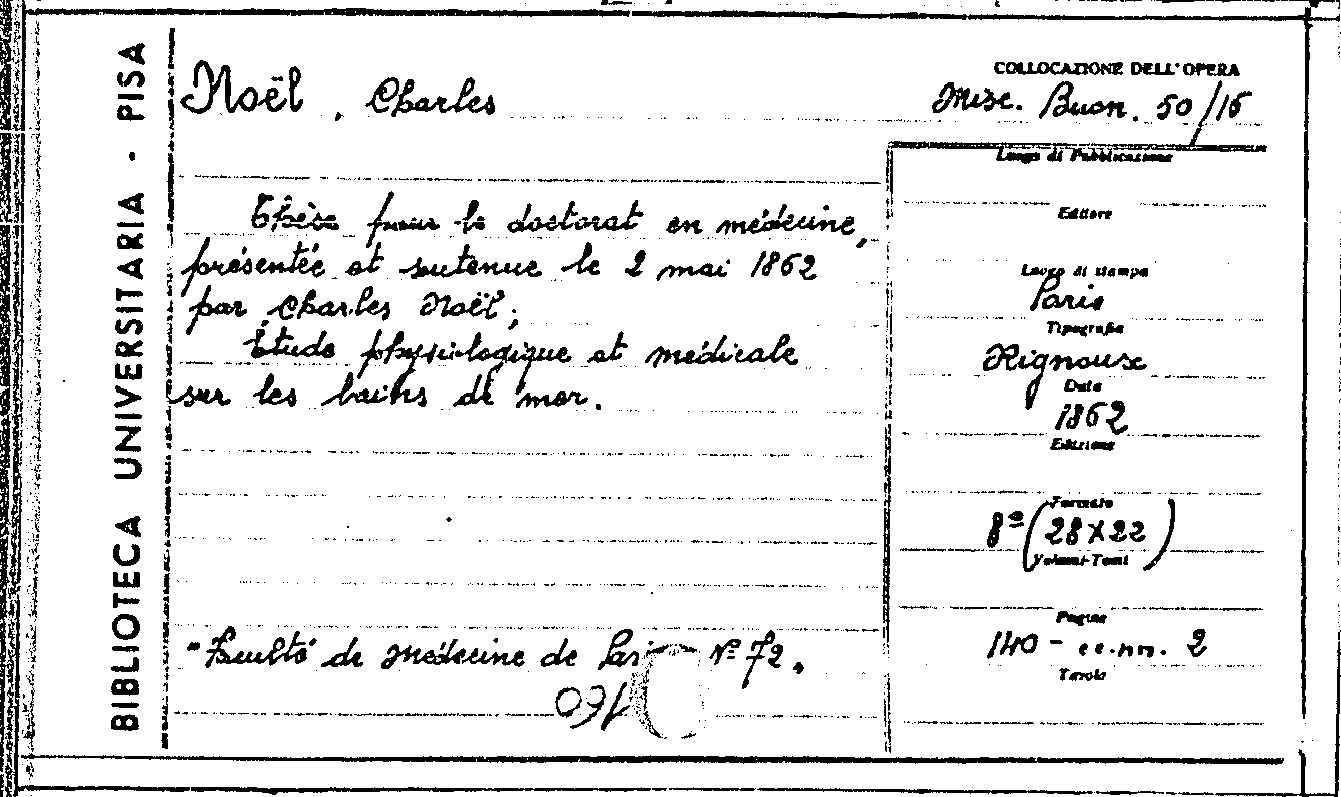 BIBLIOTECA UNIVERSITARIA - PISA
Noël, Charles
COLLOCAZIONE DELL'OPERA
Misc. Buon. 50/16
Thèse pour le doctorat en médecine,
présentée et soutenue le 2 mai 1862
par Charles Noël;
Étude physiologique et médicale
sur les bains de mer.
"Faculté de Médecine de N° 72.
Luogo di Pubblicazione
Editore
Luogo di stampa
Paris
Tipografia
Rignoux
Data
1862
Edizione
Formato
8º (28X22)
Volumi-Tomi
Pagine
140 - cc.nn. 2
Tavole